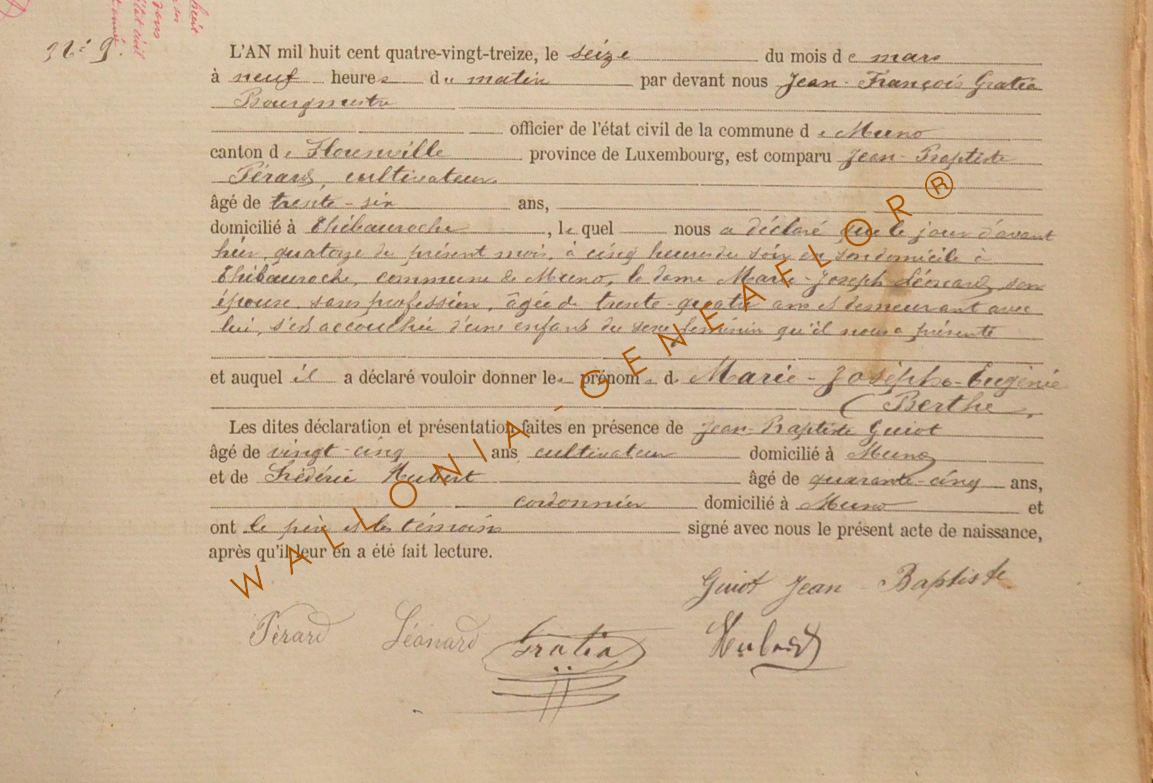 L'AN mil huit cent quatre-vingt-treize, le seize du mois de mars
à neuf heures du matin par devant nous Jean-François Gratia
Bourgmestre
officier de l'état civil de la commune de Muno
canton de Florenville province de Luxembourg, est comparu Jean-Baptiste
Pérard, cultivateur
âgé de trente-six ans,
domicilié à Thibauroche, le quel nous a déclaré que le jour d'avant
hier, quatorze du présent mois, à cinq heures du soir en son domicile à
Thibauroche, commune de Muno, la dame Marie-Joseph Léonard, son
épouse, sans profession, âgée de trente-quatre ans et demeurant avec
lui, s'est accouchée d'une enfant du sexe féminin qu'il nous a présenté
et auquel il a déclaré vouloir donner les prénoms de Marie-Josèphe-Eugénie
Berthe.
Les dites déclaration et présentation faites en présence de Jean-Baptiste Guiot
âgé de vingt-cinq ans cultivateur domicilié à Muno
et de Frédéric Hubert âgé de quarante-cinq ans,
cordonnier domicilié à Muno et
ont le père et les témoins signé avec nous le présent acte de naissance,
après qu'il leur en a été fait lecture.
Guiot Jean-Baptiste
Pérard Léonard Gratia Hubert
WALLONIA-GENEAFLOR®